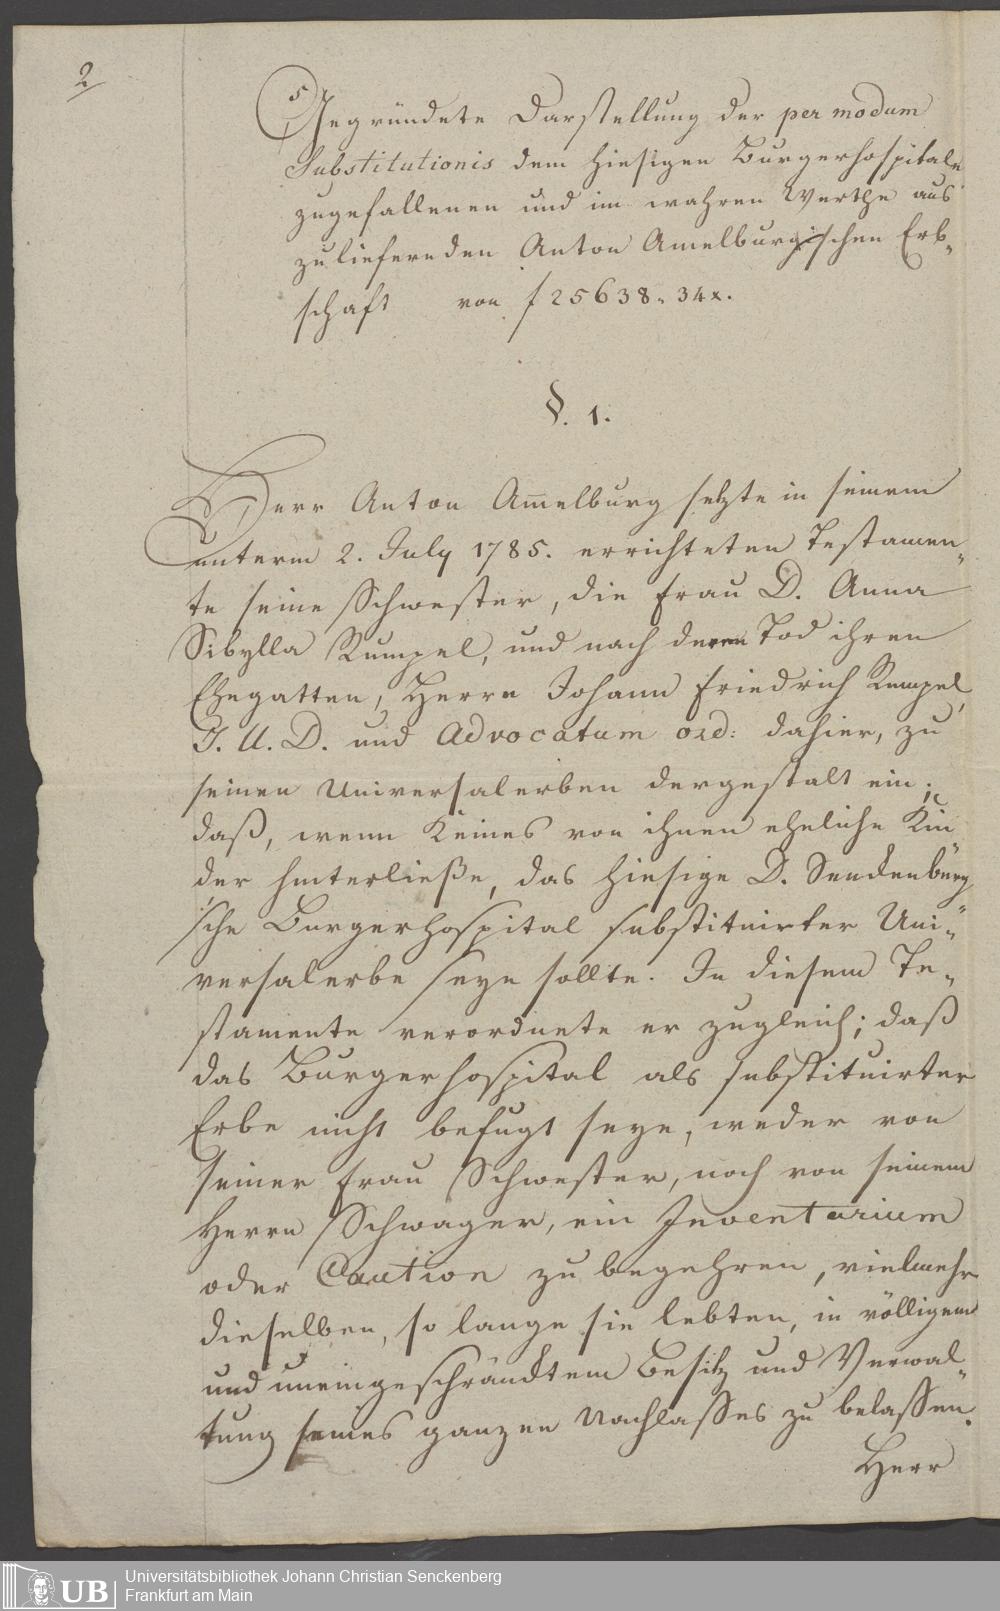 2
Gegründete Darstellung der per modum
Substitutionis dem hiesigen Burgerhospitale
zugefallenen und im wahren Werthe aus
zuliefernden Anton Amelburgischen Erb-
schaft von f 25638. 34x.
§. 1.
Herr Anton Am̅elburg setzte in seinem
unterm 2. July 1785. errichteten Testamen-
te seine Schwester, die Frau D. Anna
Sibylla Rumpel, und nach deren Tod ihren
Ehegatten, Herrn Johann Friedrich Rumpel,
J. U. D. und Advocatum ord: dahier, zu
seinen Universalerben dergestalt ein;
daß, wenn Keines von ihnen eheliche Kin
der hinterließe, das hiesige D. Senckenberg
'sche Burgerhospital substituirter Uni-
versalerbe seyn sollte. In diesem Te-
stamente verordnete er zugleich; daß
das Burgerhospital als substituirter
Erbe nicht befugt seye, weder von
seiner Frau Schwester, noch von seinem
Herrn Schwager, ein Inventarium
oder Caution zu begehren, vielmehr
dieselben, so lange sie lebten, in völligem
und uneingeschränktem Besitz und Verwal-
tung seines ganzen Nachlasses zu belassen.
Herr
UB
Universitätsbibliothek Johann Christian Senckenberg
Frankfurt am Main